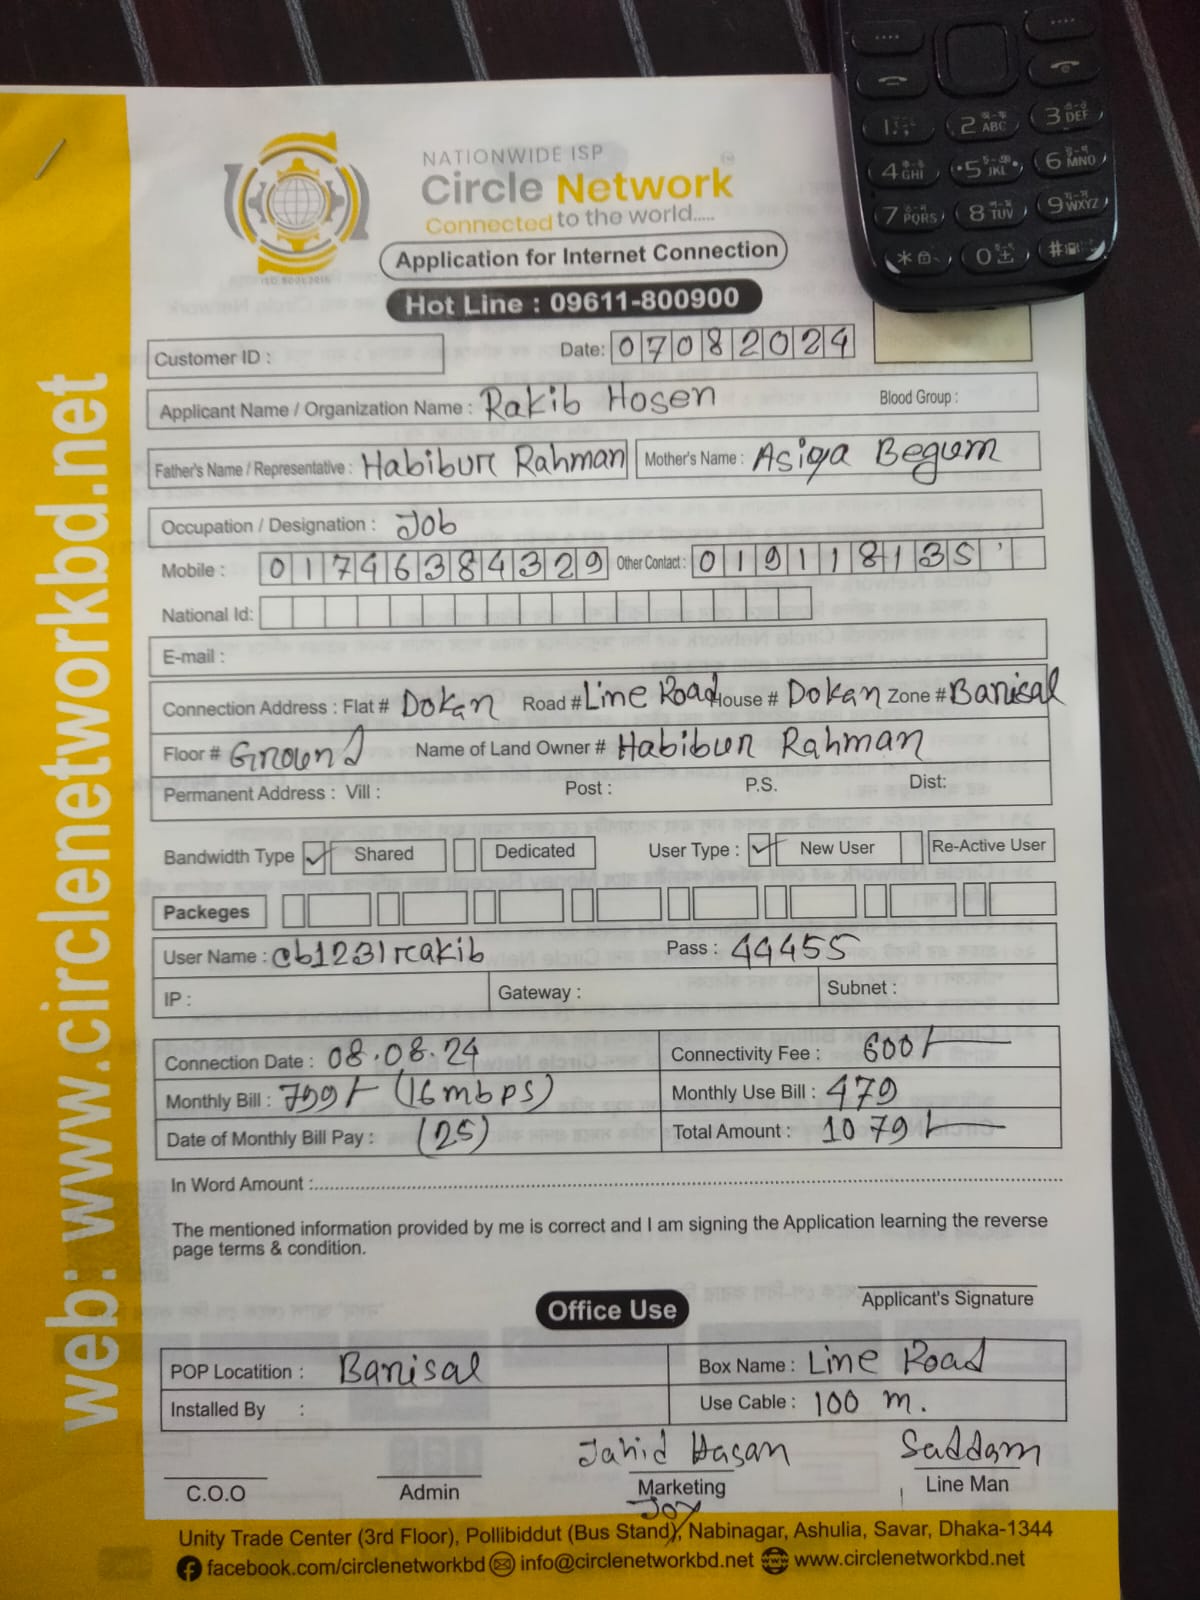 NATIONWIDE ISP
Circle Network
Connected to the world.....
ISO 9001:2015
Application for Internet Connection
Hot Line : 09611-800900
Customer ID :
Date: 07082024
Applicant Name / Organization Name : Rakib Hosen Blood Group :
Father's Name / Representative : Habibur Rahman Mother's Name : Asiya Begum
Occupation / Designation : Job
Mobile : 01746384329 Other Contact : 019118135
National Id:
E-mail :
Connection Address : Flat # Dokan Road # Line Road House # Dokan Zone # Barisal
Floor # Ground Name of Land Owner # Habibur Rahman
Permanent Address : Vill : Post : P.S. Dist:
Bandwidth Type Shared Dedicated User Type : New User Re-Active User
Packeges
User Name : cb1231rakib Pass : 44455
IP : Gateway : Subnet :
Connection Date : 08.08.24 Connectivity Fee : 600/-
Monthly Bill : 799/- (16mbps) Monthly Use Bill : 479
Date of Monthly Bill Pay : (25) Total Amount : 1079/-
In Word Amount :
The mentioned information provided by me is correct and I am signing the Application learning the reverse
page terms & condition.
Applicant's Signature
Office Use
POP Locatition : Barisal Box Name : Line Road
Installed By : Use Cable : 100 m.
Jahid Hasan Saddam
C.O.O Admin Marketing Line Man
Joy
Unity Trade Center (3rd Floor), Pollibiddut (Bus Stand), Nabinagar, Ashulia, Savar, Dhaka-1344
facebook.com/circlenetworkbd info@circlenetworkbd.net www.circlenetworkbd.net
web: www.circlenetworkbd.net
1
2 ABC
3 DEF
4 GHI
5 JKL
6 MNO
7 PQRS
8 TUV
9 WXYZ
*
0
#